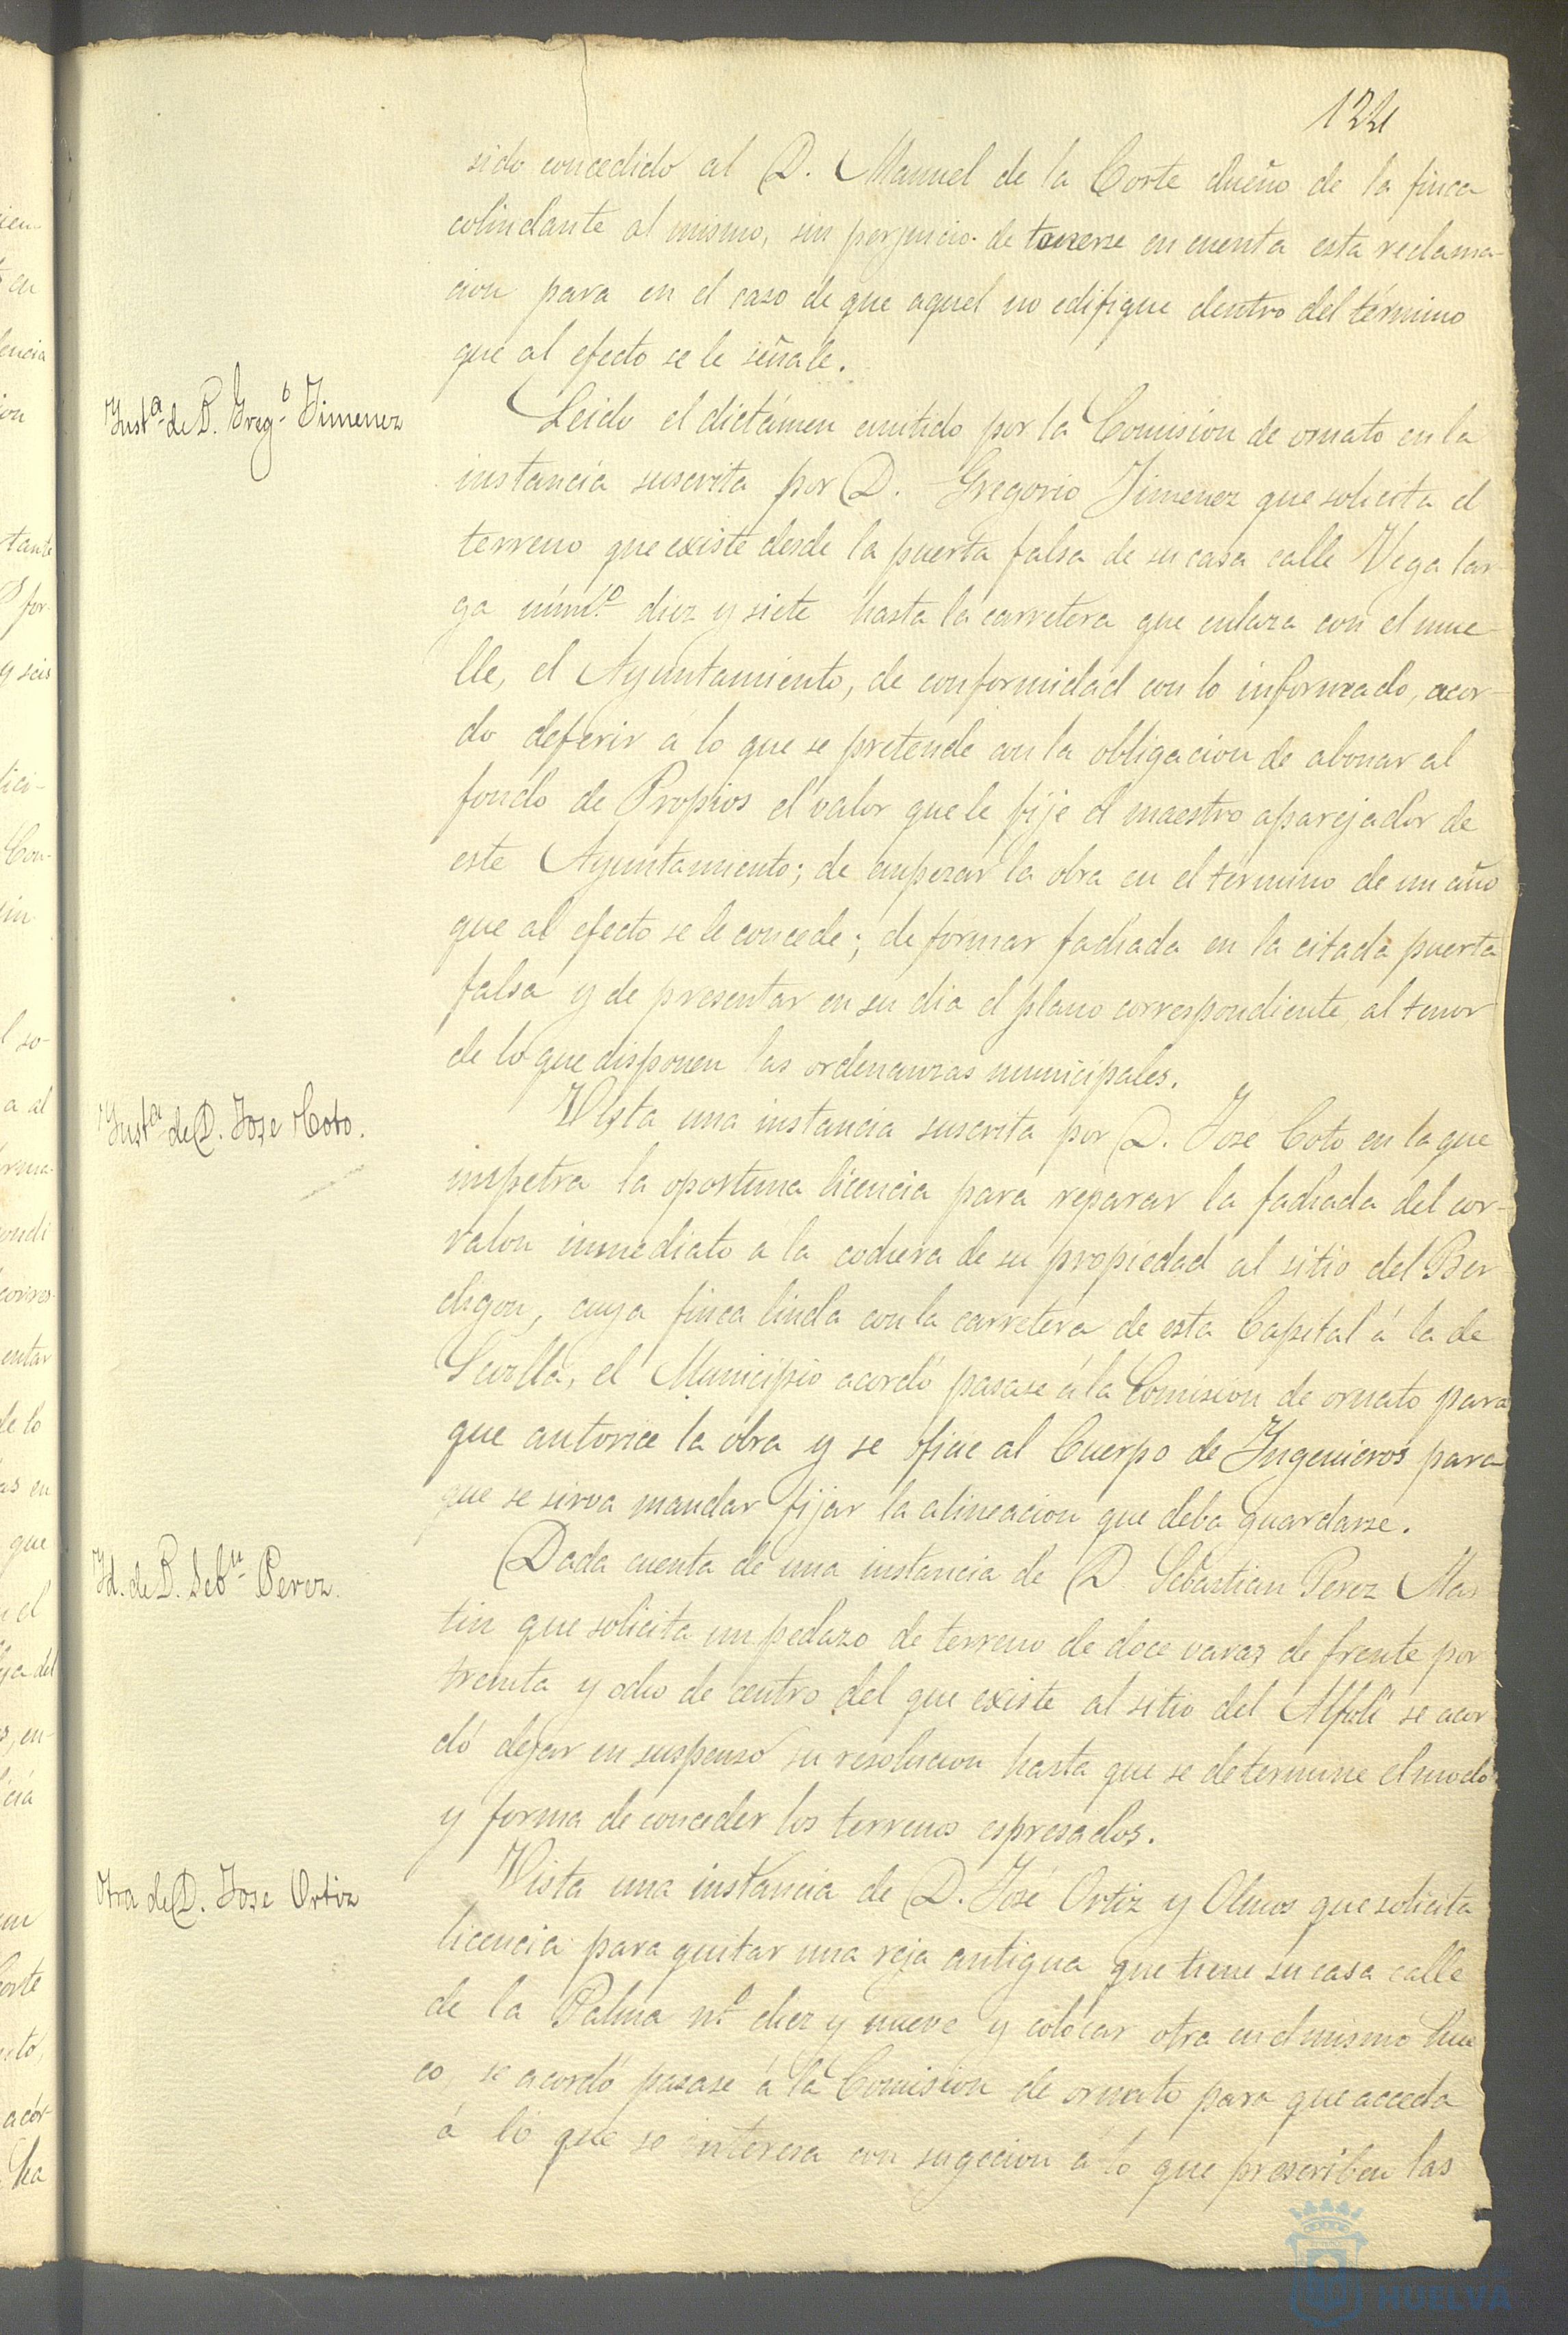 124
sido concedido al D. Manuel de la Corte dueño de la finca
colindante al mismo, sin perjuicio de tenerse en cuenta esta reclama-
cion para en el caso de que aquel no edifique dentro del término
que al efecto se le señale.
Inst.ª de D. Greg.º Jimenez
Leido el dictámen emitido por la Comision de ornato en la
instancia suscrita por D. Gregorio Jimenez que solicita el
terreno que existe desde la puerta falsa de su casa calle Vega lar
ga núm.º diez y siete hasta la carretera que enlaza con el mue-
lle, el Ayuntamiento, de conformidad con lo informado, acor-
do deferir á lo que se pretende con la obligacion de abonar al
fondo de Propios el valor que le fije el maestro aparejador de
este Ayuntamiento; de empezar la obra en el término de un año
que al efecto se le concede; de formar fachada en la citada puerta
falsa y de presentar en su dia el plano correspondiente, al tenor
de lo que disponen las ordenanzas municipales.
Inst.ª de D. Jose Coto.
Vista una instancia suscrita por D. Jose Coto en la que
impetra la oportuna licencia para reparar la fachada del cor-
ralon inmediato á la cochera de su propiedad al sitio del Ber
digon, cuya finca linda con la carretera de esta Capital á la de
Sevilla, el Municipio acordó pasase á la Comision de ornato para
que autorice la obra y se oficie al Cuerpo de Ingenieros para
que se sirva mandar fijar la alineacion que deba guardarse.
Id. de D. Seb.n Perez.
Dada cuenta de una instancia de D Sebastian Perez Mar
tin que solicita un pedazo de terreno de doce varas de frente por
treinta y ocho de centro del que existe al sitio del Alfolí se acor
dó dejar en suspenso su resolucion hasta que se determine el modo
y forma de conceder los terrenos espresados.
Otra de D. Jose Ortiz
Vista una instancia de D. José Ortiz y Olmos que solicita
licencia para quitar una reja antigua que tiene su casa calle
de la Palma n.º diez y nueve y colocar otra en el mismo hue
co, se acordó pasase á la Comision de ornato para que acceda
á lo que se interesa con sugecion á lo que prescriben las
HUELVA